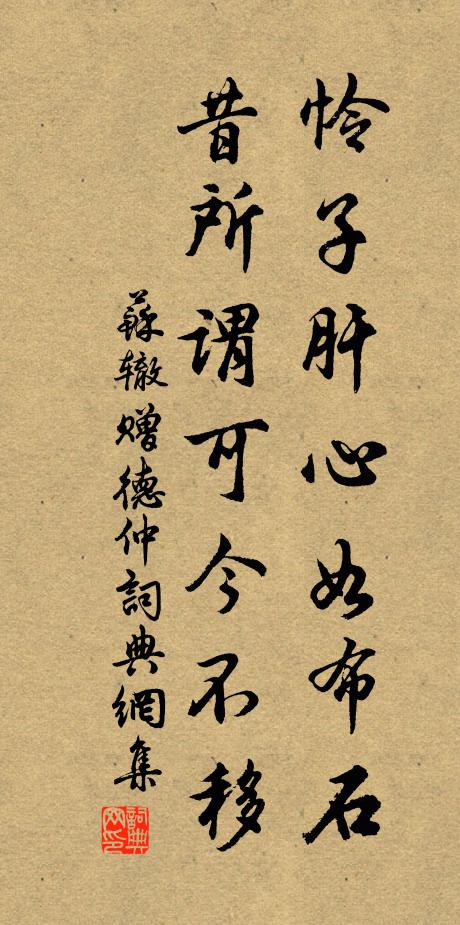 怜子肝心如布石
昔所谓可今不移
蘇辙赠德仲詞典網集
詞典网印